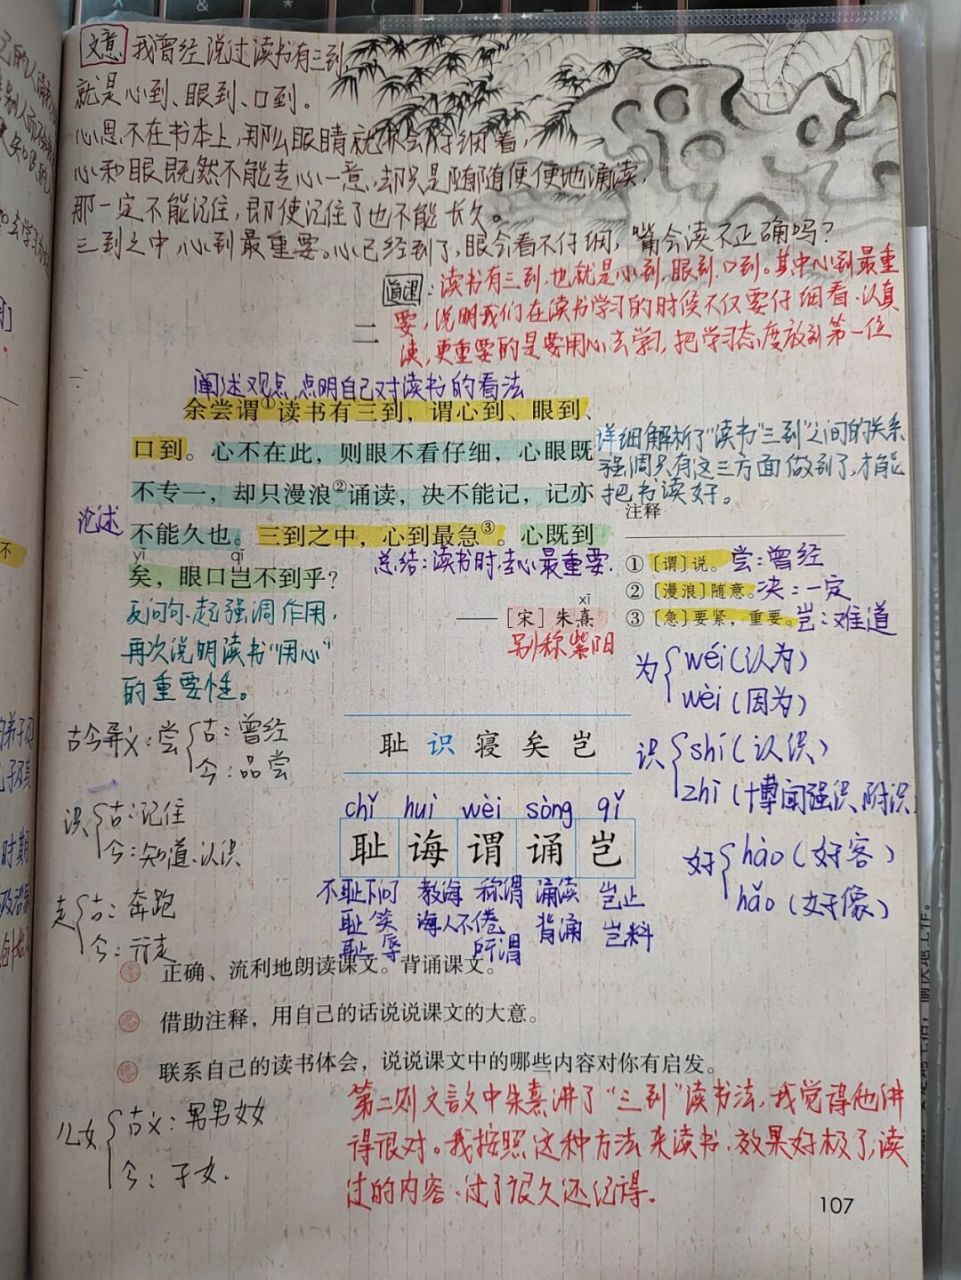 文意 我曾经说过读书有三到
就是心到、眼到、口到。
心思不在书本上,那么眼睛就不会仔细看,
心和眼既然不能专心一意,却只是随随便便地诵读,
那一定不能记住,即使记住了也不能长久。
三到之中,心到最重要。心已经到了,眼会看不仔细,嘴会读不正确吗?
道理:读书有三到,也就是心到,眼到、口到。其中心到最重
要,说明我们在读书学习的时候不仅要仔细看、认真
读,更重要的是要用心去学习,把学习态度放到第一位
二
阐述观点,点明自己对读书的看法
余尝谓①读书有三到,谓心到、眼到、
口到。心不在此,则眼不看仔细,心眼既
不专一,却只漫浪②诵读,决不能记,记亦
不能久也。三到之中,心到最急③。心既到
yǐ qǐ
矣,眼口岂不到乎?
论述
详细解析了"读书"三到"之间的关系
强调只有这三方面做到了,才能
把书读好。
总结:读书时,专心最重要.
反问句,起强调作用,
再次说明读书"用心"
的重要性。
xī
——[宋]朱熹
别称紫阳
注释
①〔谓〕说。尝:曾经
②〔漫浪〕随意。决:一定
③〔急〕要紧,重要。岂:难道
为 wéi(认为)
wèi(因为)
识 shí(认识)
zhì(博闻强识、附识)
好 hào(好客)
hǎo(好像)
古今异义:尝 古:曾经
今:品尝
识 古:记住
今:知道、认识
走 古:奔跑
今:行走
耻 识 寝 矣 岂
chǐ huì wèi sòng qǐ
耻 诲 谓 诵 岂
不耻下问 教诲 称谓 诵读 岂止
耻笑 诲人不倦 所谓 背诵 岂料
耻辱
正确、流利地朗读课文。背诵课文。
借助注释,用自己的话说说课文的大意。
联系自己的读书体会,说说课文中的哪些内容对你有启发。
儿女 古义:男男女女
今:子女.
第二则文言文中朱熹讲了"三到"读书法,我觉得他讲
得很对。我按照这种方法来读书,效果好极了,读
过的内容,过了很久还记得。
107